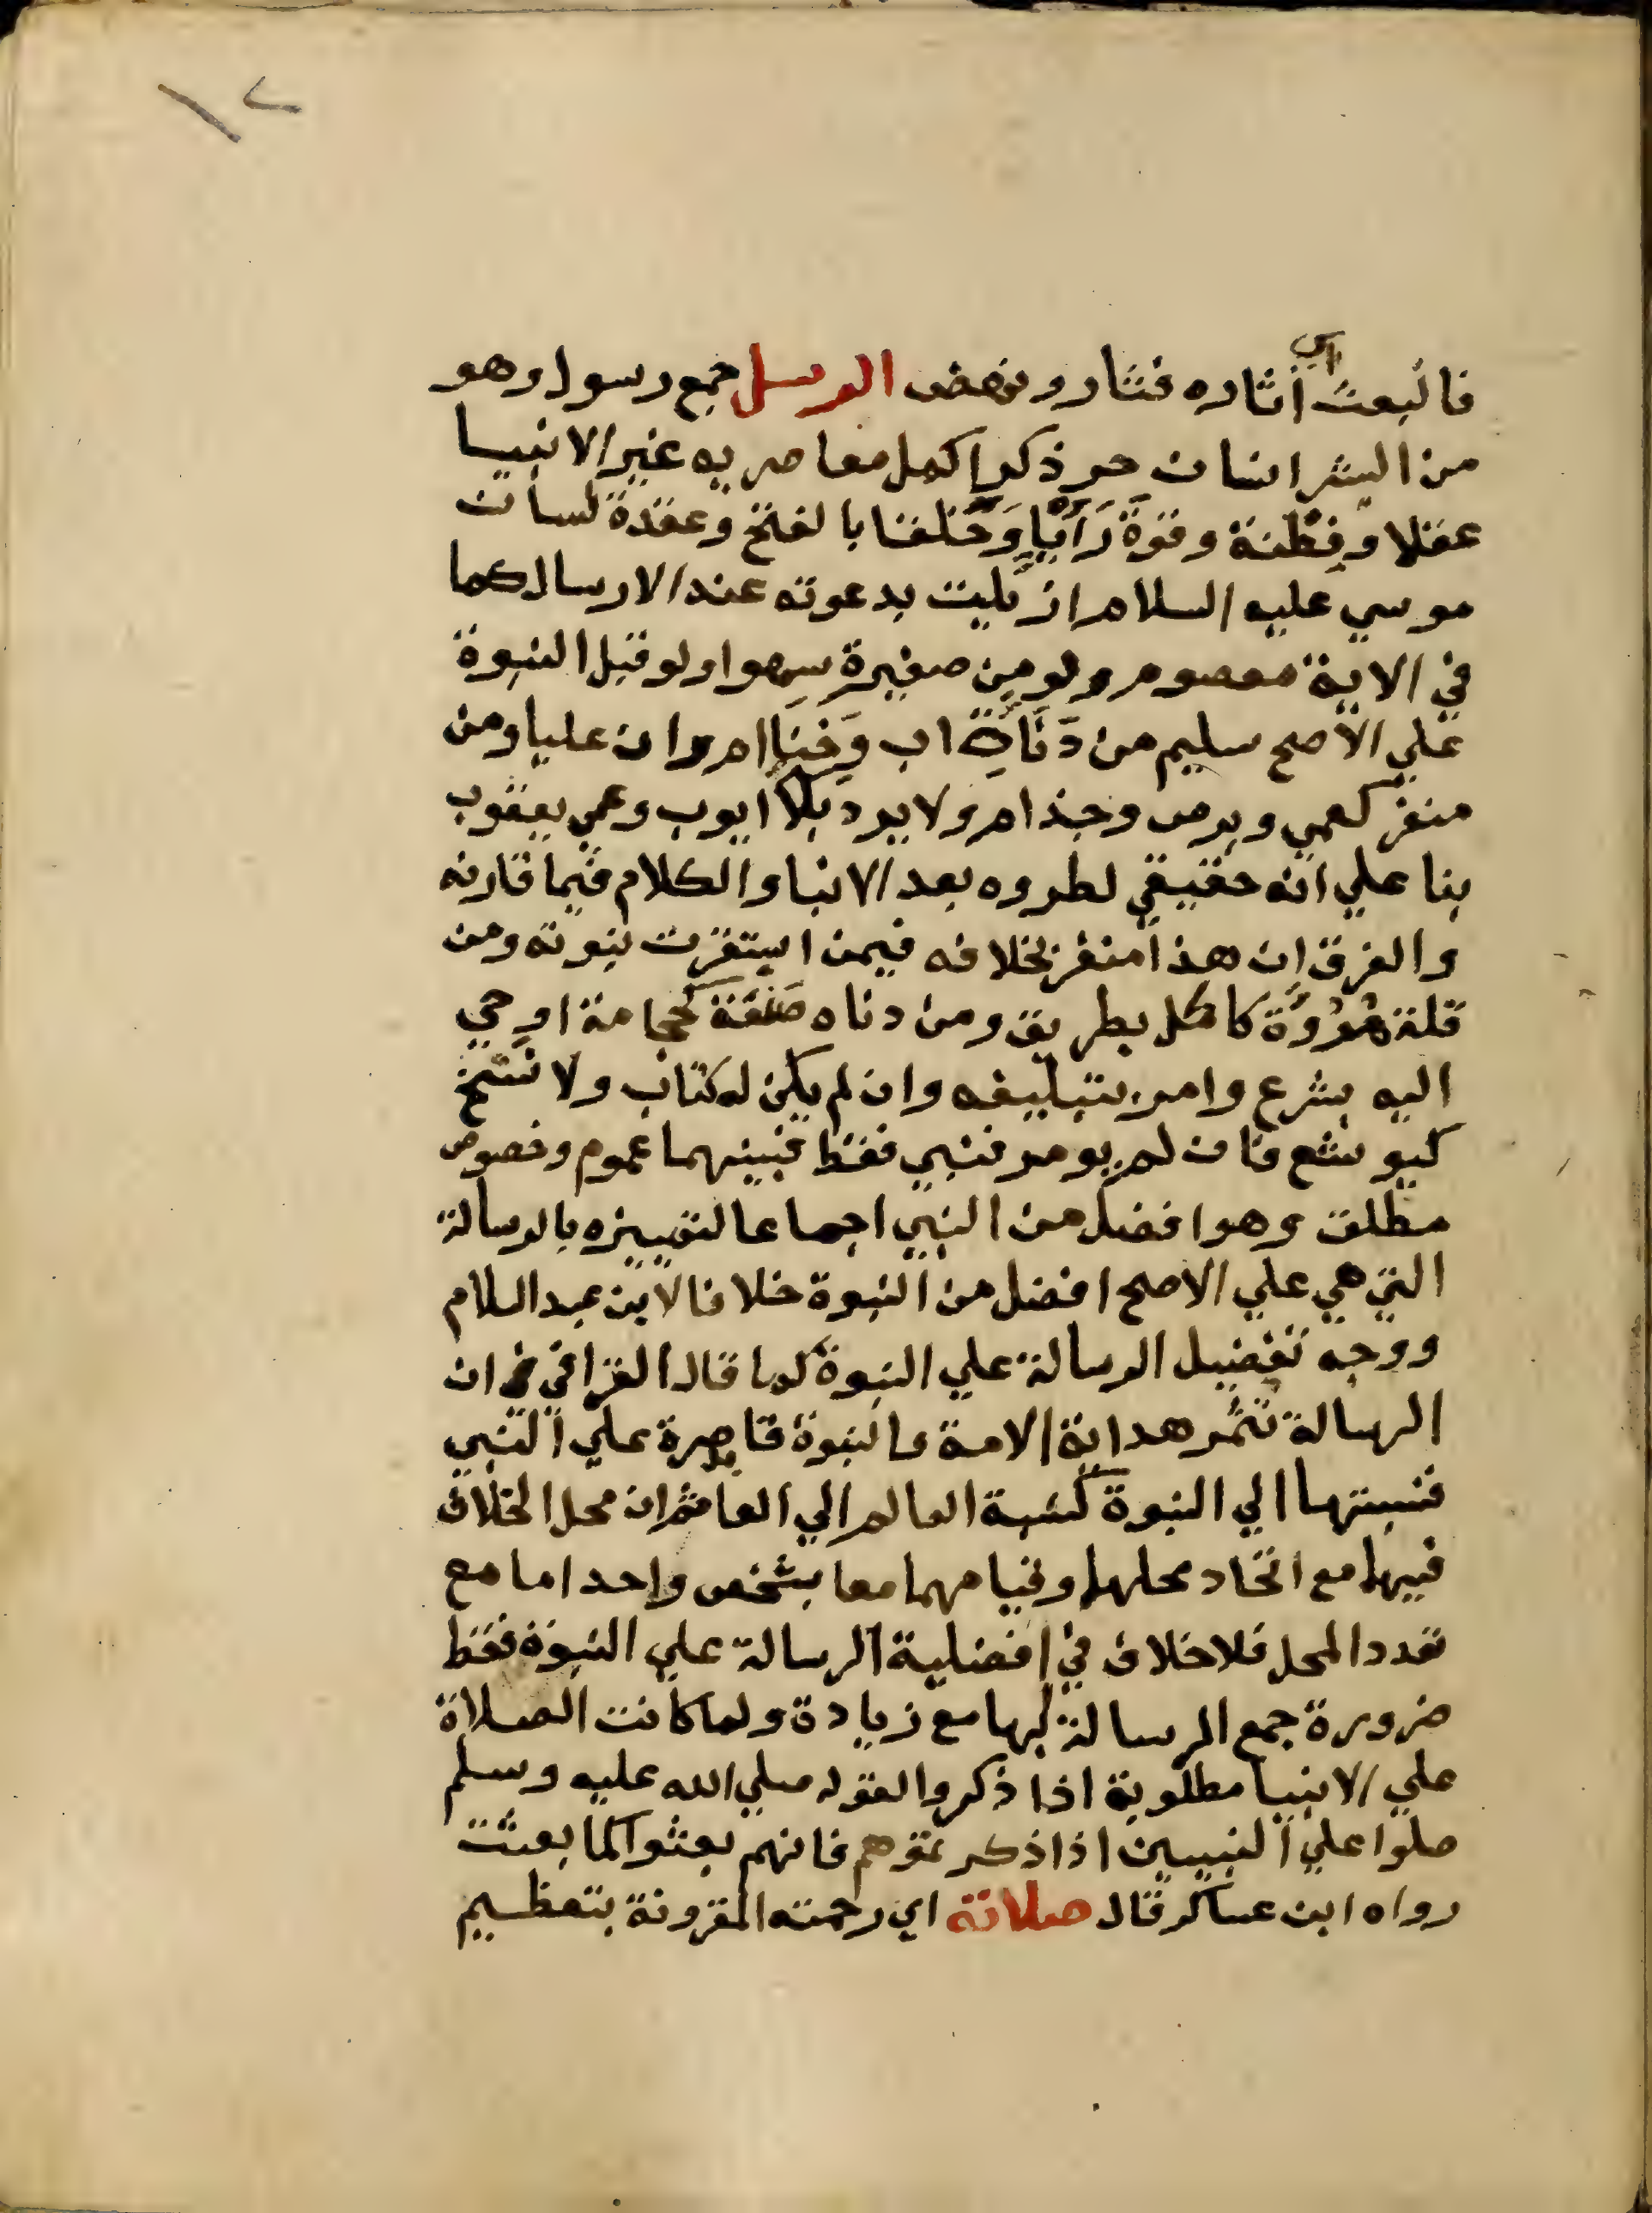 ١٢
اي
فانبعث أثاره فثار ونهض الرسل جمع رسول وهو
من البشر انسان حر ذكر اكمل معاصريه غير الانبيا
عقلا وفطنة وقوة رَأيا وخَلقا بالفتح وعقدة لسان
موسي عليه السلام ازيلت بدعوته عند الارسال كما
في الاية معصوم ولو من صغيرة سهوا ولو قبل النبوة
علي الاصح سليم من دَنَاة اب وخَنا ام وان عليا ومن
منفر كعمي وبرص وجذام ولا يرد بلا ايوب وعمي يعقوب
بنا علي انه حقيقي لطروه بعد الانبا والكلام فيما قارنه
والفرق ان هذا منفر بخلافه فيمن استقرت نبوته ومن
قلة مُرُوَّة كاكل بطريق ومن دناه صنعة كحجامة اوحي
اليه بشرع وامر بتبليغه وان لم يكن له كتاب ولا نسخ
كيوشع فان لم يومر فنبي فقط فبينهما عموم وخصوص
مطلق وهو افضل من النبي اجماعا لتمييزه بالرسالة
التي هي علي الاصح افضل من النبوة خلافا لابن عبد السلام
ووجه تفضيل الرسالة علي النبوة كما قال القرافي ان
الرسالة تثمر هداية الامة والنبوة قاصرة علي النبي
فنسبتها الي النبوة كنسبة العالم الي العا ثم ان محل الخلاف
فيهما مع اتحاد محلهما وقيامهما معا بشخص واحد اما مع
تعدد المحل فلا خلاف في افضلية الرسالة علي النبوة فقط
ضرورة جمع الرسالة لها مع زيادة ولما كانت الصلاة
علي الانبيا مطلوبة اذا ذكروا لقوله صلي الله عليه وسلم
صلوا علي النبيين اذا ذكرتموهم فانهم بعثوا كما بعثت
رواه ابن عساكر قال صلاته اي رحمته المقرونة بتعظيم